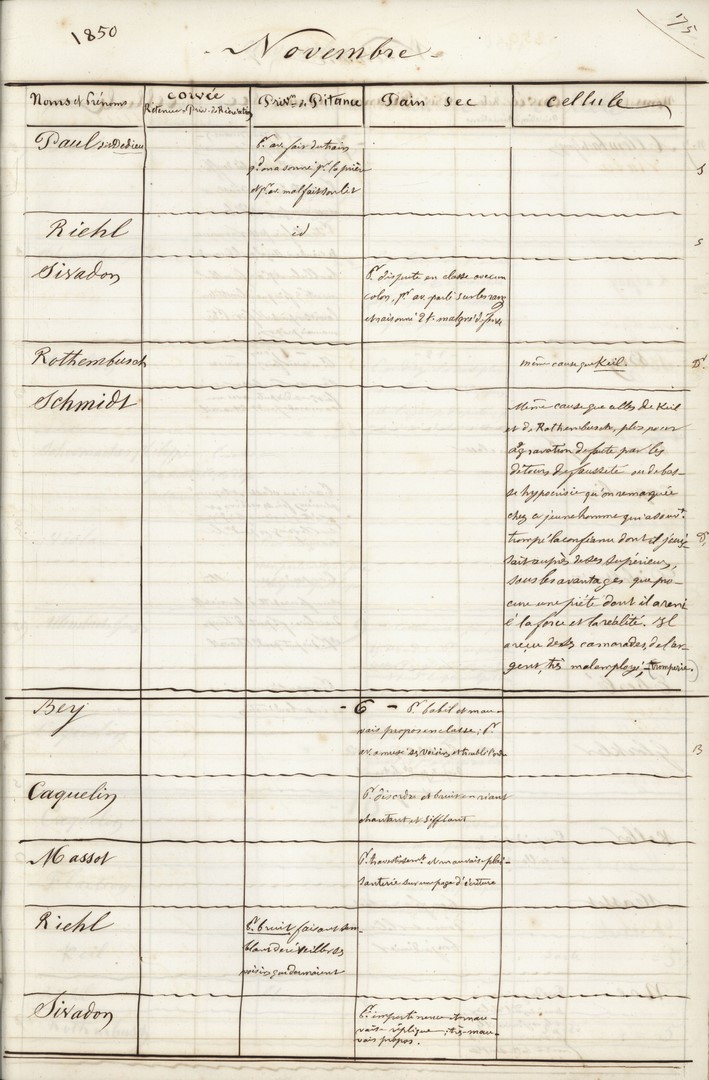 1850
Novembre
175
Noms et Prénoms
corvée
Retenue & Priv. de Récréation
Priv.on de Pitance
Pain sec
cellule
Paul dit Dedieu
pr. av. fait du train
qd. on a sonné pr. la prière
et pr. av. mal fait son lit
5
Riehl
id
5
Sixadon
pr. dispute en classe avec un
colon, pr. av. parlé sur les rangs
et raisonné 2 f. malgré déf.
Rothembusch
même cause que Keil.
D.
Schmidt
Même cause que celles de Keil
et de Rothembusch, plus pour
aggravation de faute par les
détours de fausseté ou de bas-
se hypocrisie qu'on remarquée
chez ce jeune homme qui a souvt.
trompé la confiance dont il jouis-
sait auprès de ses supérieurs,
sous les avantages que pro-
cure une piété dont il a reni
é la force et la réalité. Il
a reçu de ses camarades de l'ar-
gent, très mal employé, (tromperie)
D.
- 6 -
Bey
pr. babil et mau-
vais propos en classe; pr.
av. amusé ses voisins et troublé l'ord.
B
Caquelin
pr. désordre et bruit en riant
chantant et sifflant
Massot
pr. travestissemt. et mauvaise plai-
santerie sur une page d'écriture
Riehl
pr. bruit faisant sem-
blant de réveiller ses
voisins qui dormaient
Sixadon
pr. impertinence et mau-
vaise réplique; très mau-
vais propos.